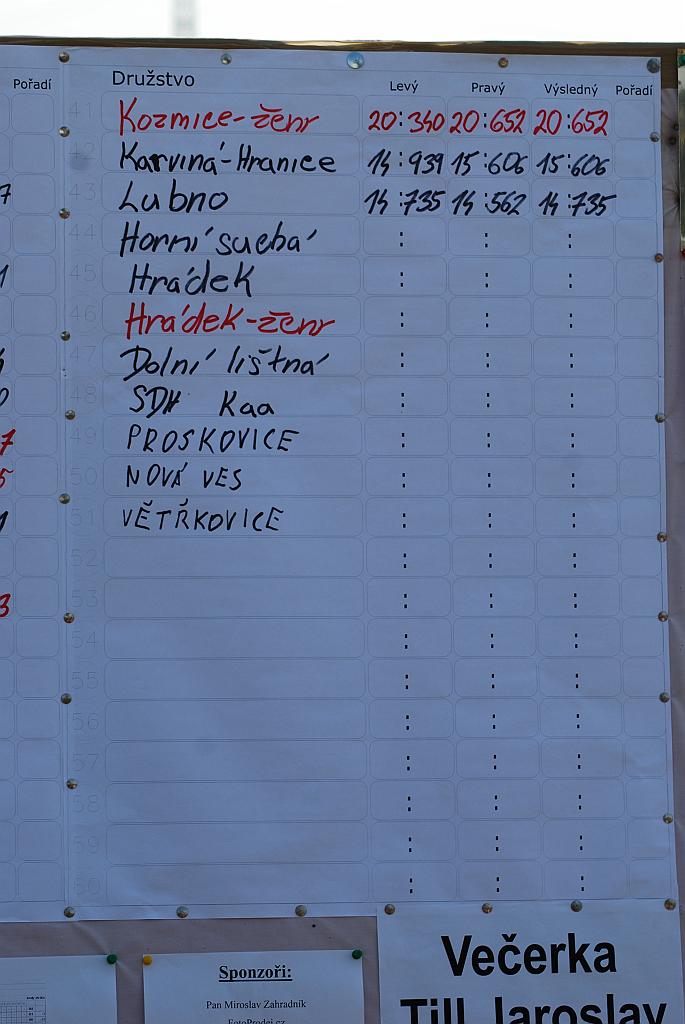 Pořadí Družstvo Levý Pravý Výsledný Pořadí
41 Kozmice-ženy 20:340 20:652 20:652
42 Karviná-Hranice 14:939 15:606 15:606
43 Lubno 14:735 14:562 14:735
44 Horní suchá : : :
45 Hrádek : : :
46 Hrádek-ženy : : :
47 Dolní lištná : : :
48 SDH Kaa : : :
49 PROSKOVICE : : :
50 NOVÁ VES : : :
51 VĚTŘKOVICE : : :
52 : : :
53 : : :
54 : : :
55 : : :
56 : : :
57 : : :
58 : : :
59 : : :
60 : : :
Sponzoři:
Pan Miroslav Zahradník
FotoProdej.cz
Večerka
Till Jaroslav